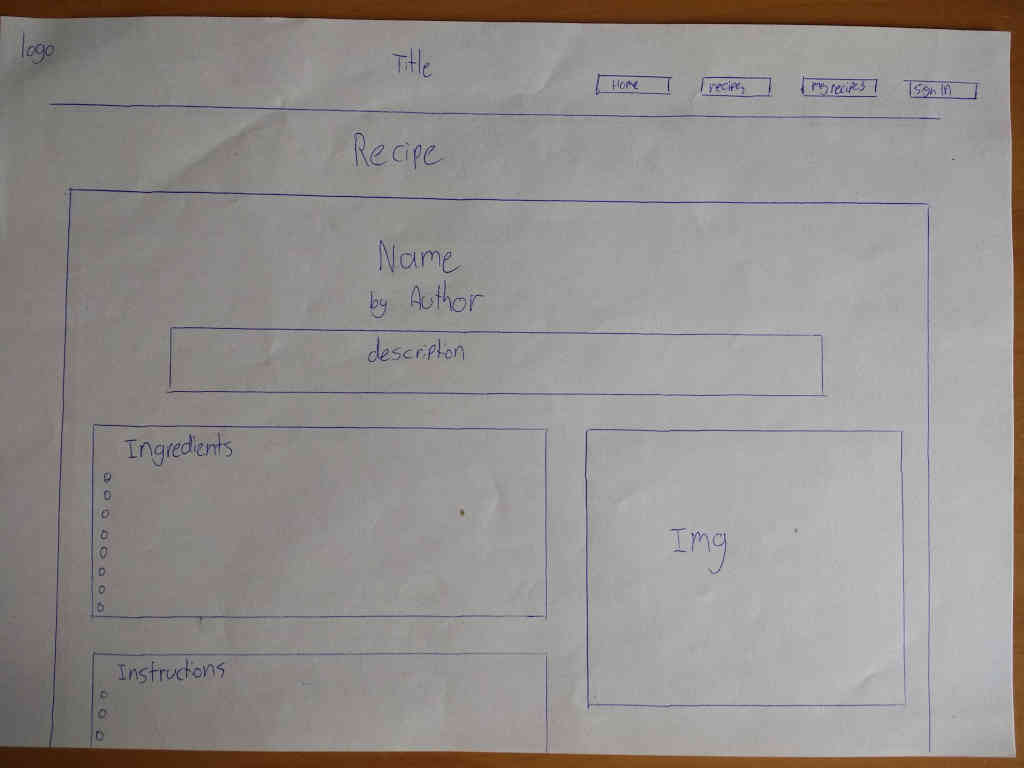 logo
Title
Home
recipes
my recipes
Sign In
Recipe
Name
by Author
description
Ingredients
Img
Instructions